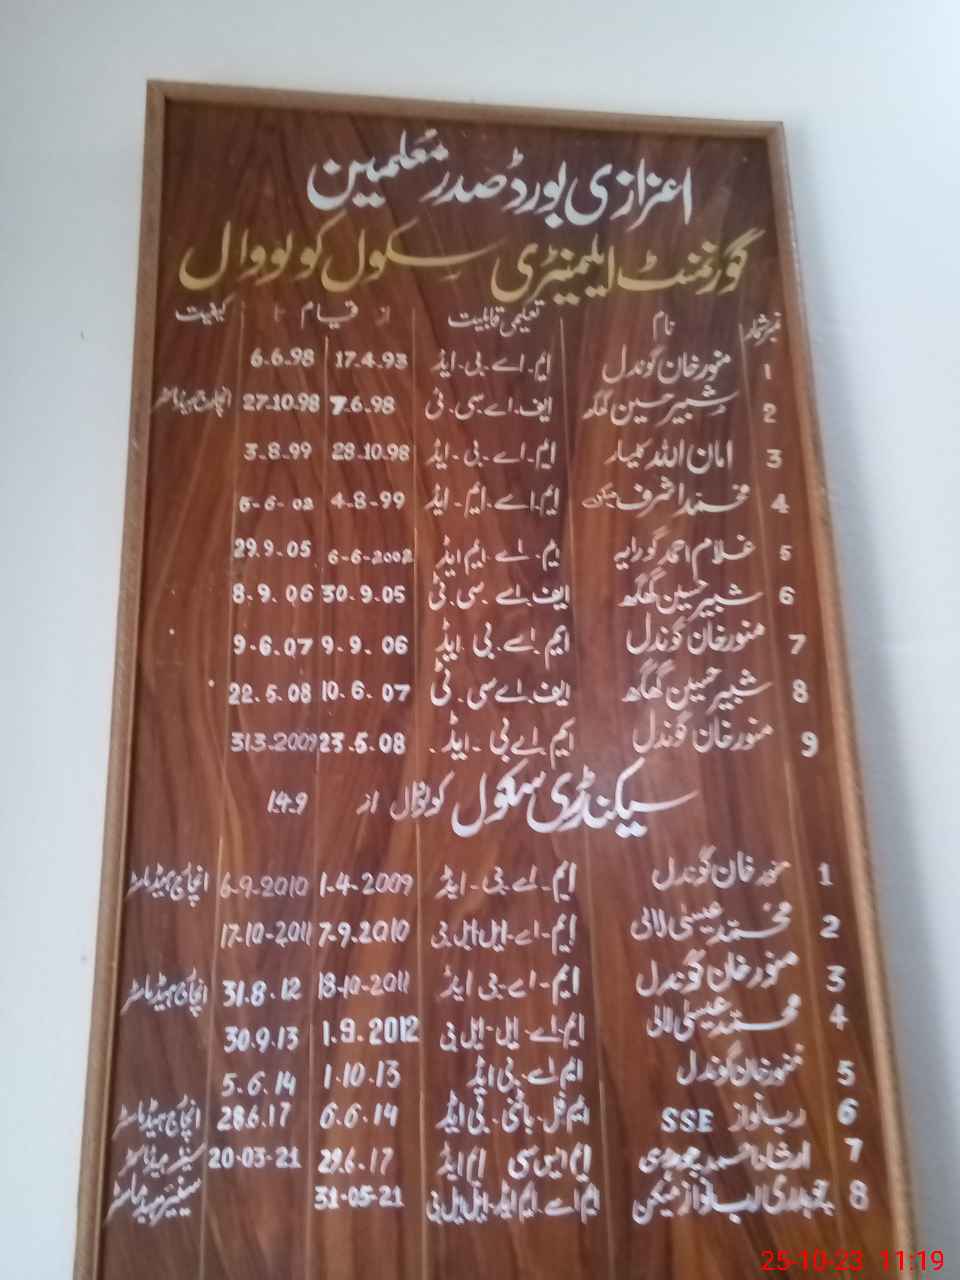 اعزازی بورڈ صدر معلمین
گورنمنٹ ایلیمنٹری سکول کولووال
نمبر شمار نام تعلیمی قابلیت از قیام تا کیفیت
1 منور خان گوندل ایم۔اے۔بی۔ایڈ 17.4.93 6.6.98
2 شبیر حسین گھگھ ایف۔اے۔سی۔ٹی 7.6.98 27.10.98 انچارج ہیڈ ماسٹر
3 امان اللہ ایم۔اے۔بی۔ایڈ 28.10.98 3.8.99
4 محمد اشرف میکن ایم۔اے۔ایم۔ایڈ 4-8-99 5-6-02
5 غلام احمد گورایہ ایم۔اے۔ایم ایڈ 6-6-2002 29.9.05
6 شبیر حسین گھگھ ایف۔اے۔سی۔ٹی 30.9.05 8.9.06
7 منور خان گوندل ایم۔اے۔بی۔ایڈ 9.9.06 9-6.07
8 شبیر حسین گھگھ ایف۔اے سی۔ٹی 10.6.07 22.5.08
9 منور خان گوندل ایم۔اے بی۔ایڈ۔ 23.5.08 31.3.2009
سیکنڈری سکول کولووال از 1.4.9
1 منور خان گوندل ایم۔اے۔بی۔ایڈ 1-4-2009 6-9-2010 انچارج ہیڈ ماسٹر
2 محمد عیسیٰ لالی ایم۔اے۔ایل ایل بی 7-9.2010 17-10-2011
3 منور خان گوندل ایم۔اے۔بی ایڈ 18-10-2011 31.8.12 انچارج ہیڈ ماسٹر
4 محمد عیسیٰ لالی ایم۔اے۔ایل۔ایل بی 1.9.2012 30.9.13
5 منور خان گوندل ایم اے۔بی ایڈ 1.10.13 5.6.14
6 رب نواز SSE ایم فل۔باٹنی۔بی ایڈ 6.6.14 28.6.17 انچارج ہیڈ ماسٹر
7 ارشاد احمد چوہدری ایم ایس سی ایم ایڈ 29.6.17 20-03-21 سینئر ہیڈ ماسٹر
8 چوہدری رب نواز میکن ایم اے۔ایم ایڈ۔ایل ایل بی 31-05-21 سینئر ہیڈ ماسٹر
25-10-23 11:19